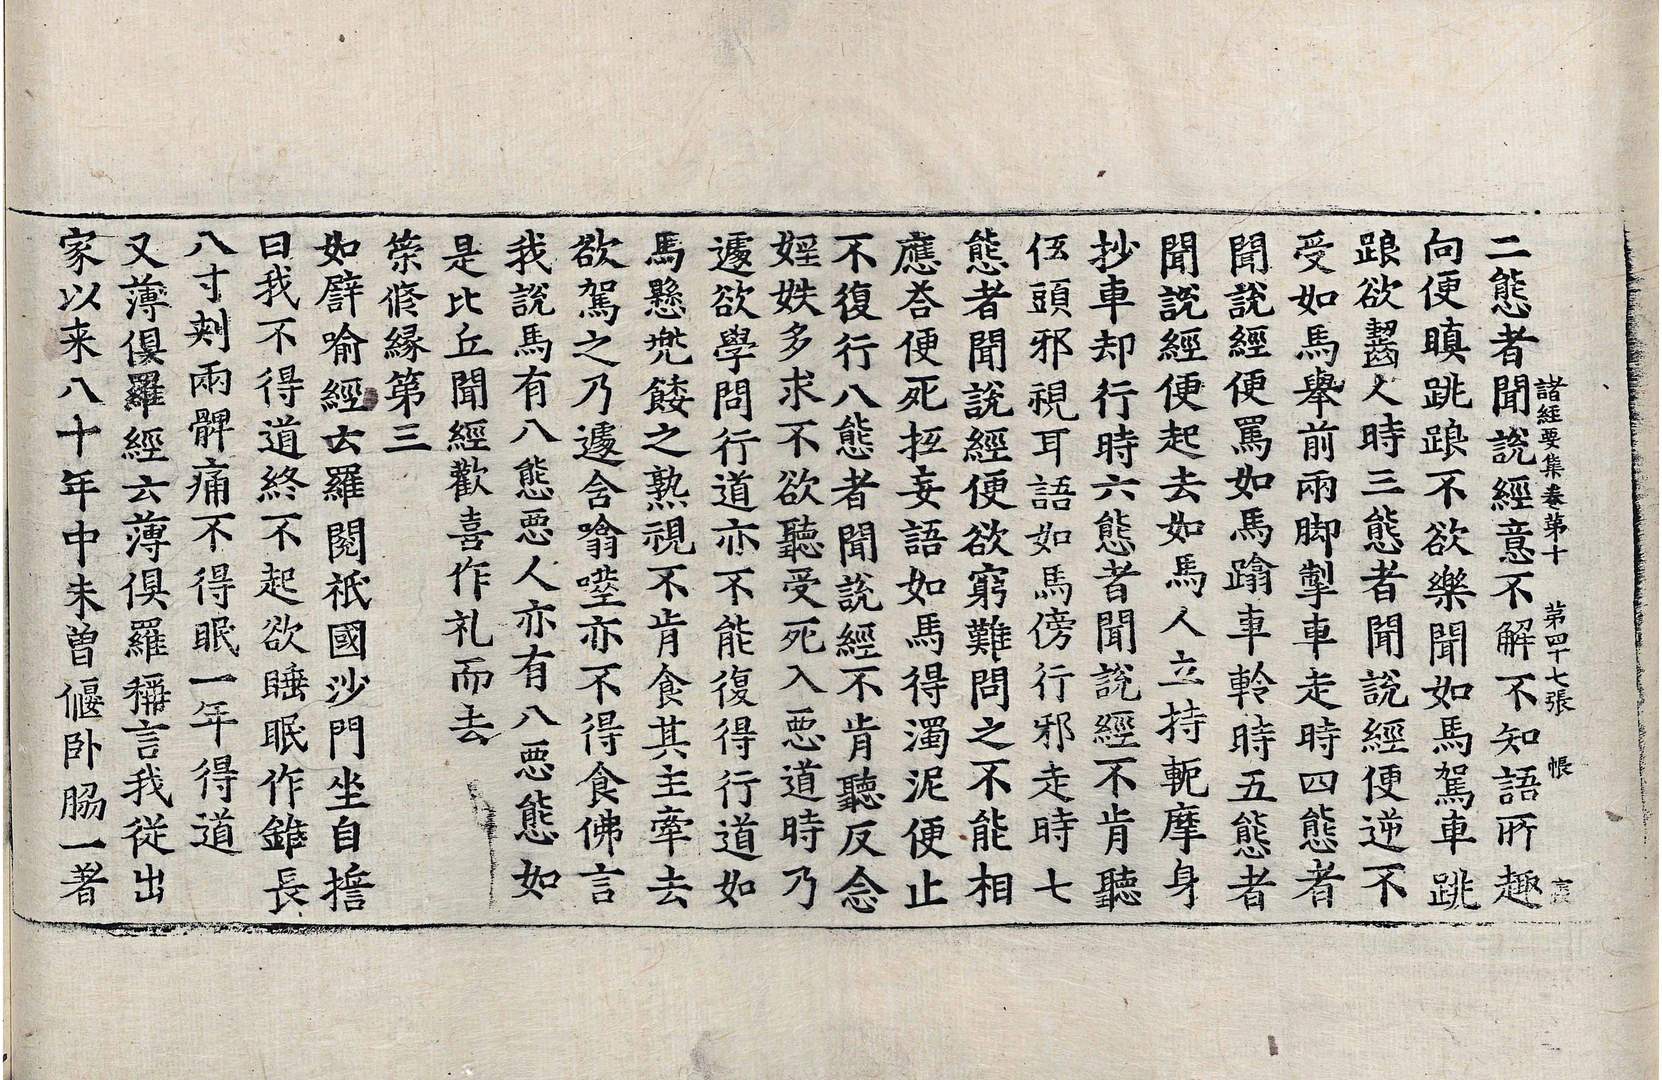 二態者聞說經意不解不知語所趣
諸經要集卷第十　第四十七張　帳
向便瞋跳踉不欲樂聞如馬駕車跳
踉欲齧人時三態者聞說經便逆不
受如馬舉前兩脚掣車走時四態者
聞說經便罵如馬蹹車軨時五態者
聞說經便起去如馬人立持軛摩身
抄車却行時六態者聞說經不肯聽
伍頭邪視耳語如馬傍行邪走時七
態者聞說經便欲窮難問之不能相
應荅便死抂妄語如馬得濁泥便止
不復行八態者聞說經不肯聽反念
婬妷多求不欲聽受死入惡道時乃
遽欲學問行道亦不能復得行道如
馬懸兠餧之熟視不肯食其主牽去
欲駕之乃遽含噏噬亦不得食佛言
我說馬有八態惡人亦有八惡態如
是比丘聞經歡喜作礼而去
策修縁第三
如譬喻經云羅閱祇國沙門坐自誓
曰我不得道終不起欲睡眠作錐長
八寸刾兩髀痛不得眠一年得道
又薄俱羅經云薄俱羅稱言我從出
家以来八十年中未曾偃卧脇一著